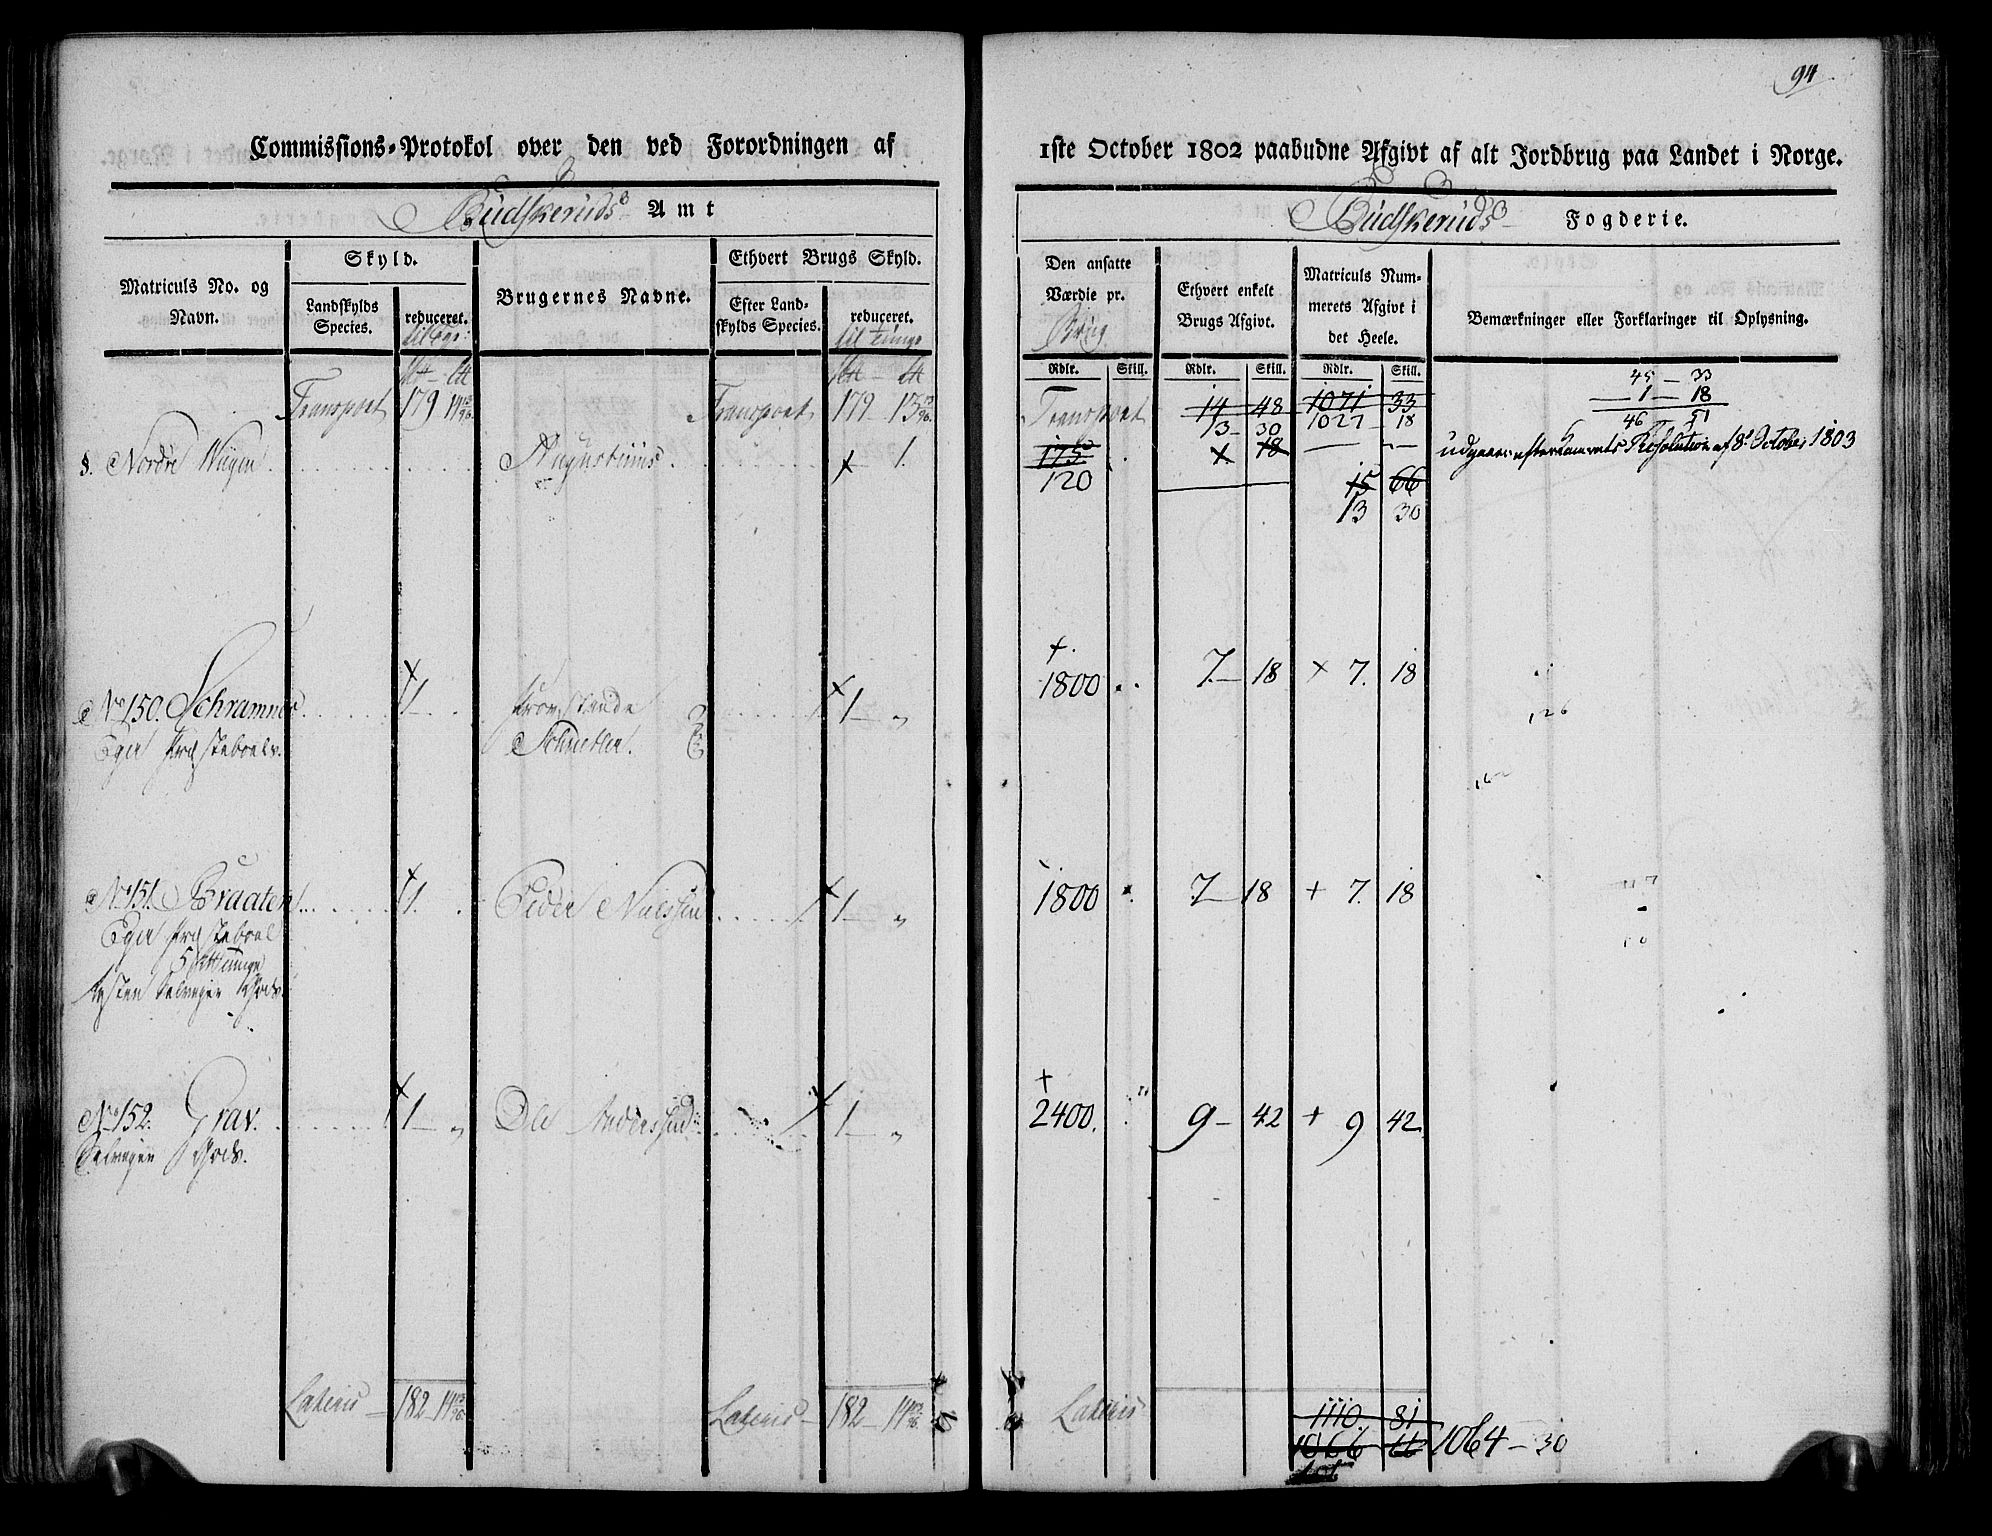 94
Commissions-Protokol over den ved Forordningen af
1ste October 1802 paabudne Afgivt af alt Jordbrug paa Landet i Norge.
Budskeruds Amt
Budskeruds Fogderie.
Matriculs No. og Navn.
Skyld.
Landskylds Species.
reduceret.
Brugernes Navne.
Ethvert Brugs Skyld.
Efter Landskylds Species.
reduceret.
til Tunge
Den ansatte Værdie pr.
Brug
Rdlr. Skill.
Ethvert enkelt Brugs Afgivt.
Rdlr. Skill.
Matriculs Nummerets Afgivt i det Heele.
Rdlr. Skill.
Bemærkninger eller Forklaringer til Oplysning.
Transport 179 Transport 179 - 13 Transport 14 48 1071 33
13 - 30 1027 - 18
45 - 33
1 - 18
46 - 51
Nordre Augustinus 1. 175 18
udgaaer efter Resolution af 8de October 1803
120 15 66
13 30
No 150. Schramnes 1 1 „ 1800 7 18 7. 18
Eger Præsteboel
126
No 151. Braaten 1 Peder Nielssen 1 „ 1800 7 18 7. 18
Eger Præsteboel
5
Selveyer Gods.
No 152. Grav. 1 „ Ole Anderssen 1 „ 2400. 9 - 42 9 42
Selveyer Gods.
Lateris 182 Lateris 182 Lateris 1110 81
1066 1064 - 30